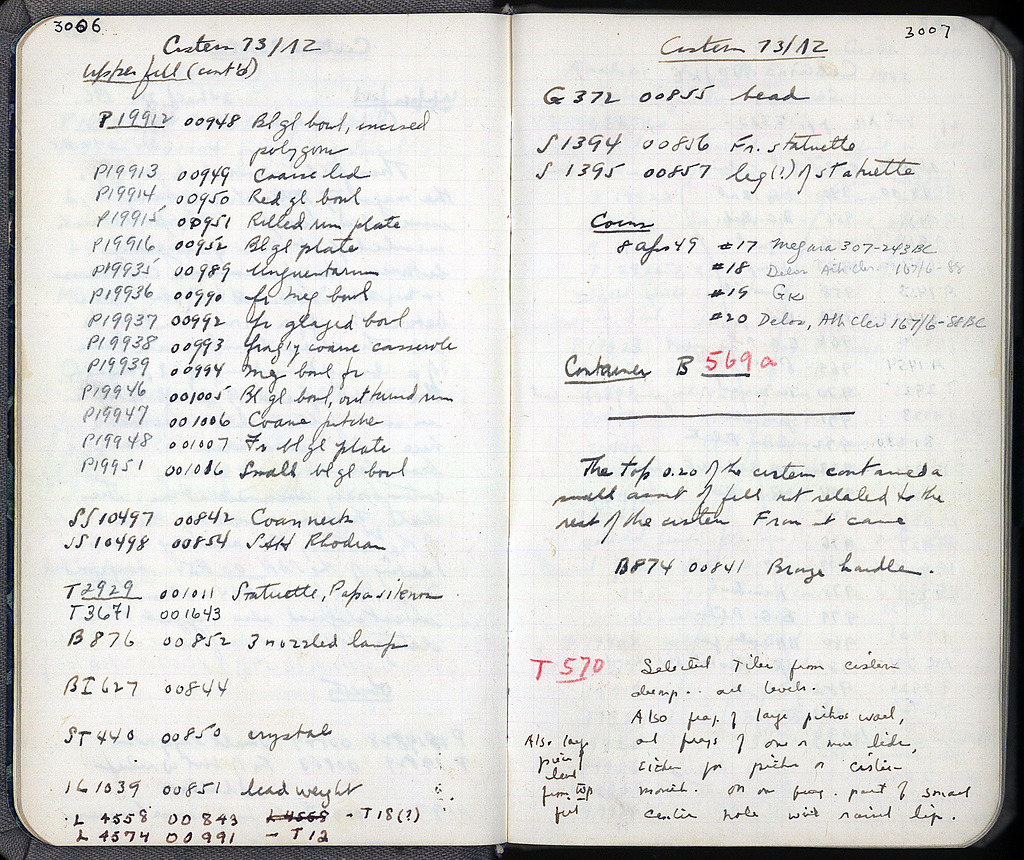 3006
Cistern 73/12
Upper fill (cont'd)
P 19912 00948 Bl gl bowl, incised
polygon
P19913 00949 Coarse lid
P19914 00950 Red gl bowl
P19915 00951 Rilled rim plate
P19916 00952 Bl gl plate
P19935 00989 Unguentarium
P19936 00990 fr Meg bowl
P19937 00992 fr glazed bowl
P19938 00993 frag'y coarse casserole
P19939 00994 Meg bowl fr
P19946 001005 Bl gl bowl, out turned rim
P19947 001006 Coarse pitcher
P19948 001007 Fr bl gl plate
P19951 001016 Small bl gl bowl
SS 10497 00842 Coan neck
SS 10498 00854 SAH Rhodian
T2929 001011 Statuette, Papposilenos
T3671 001643
B 876 00852 3 nozzled lamp
BI 627 00844
ST 440 00850 crystal
IL 1039 00851 lead weight
L 4558 00 843 L 4558 - T 18(?)
L 4574 00 991 - T 12
3007
Cistern 73/12
G 372 00855 bead
S 1394 00856 Fr. statuette
S 1395 00857 leg(?) of statuette
Coins
8 Apr 49 #17 Megara 307-243 BC
#18 Delos Ath Cler. 167/6-88
#19 Gk
#20 Delos, Ath Cler 167/6-88 BC
Container B 569a
The top 0.20 of the cistern contained a
small amt of fill not related to the
rest of the cistern From it came
B874 00841 Bronze handle.
T 570 Selected tiles from cistern
dump.. all levels.
Also frag. of large pithos wall,
and frags of one or more lids,
either for pithos or cistern
mouth. On one frag. part of small
center hole with raised lip.
Also large
piece
lead
from top
fill